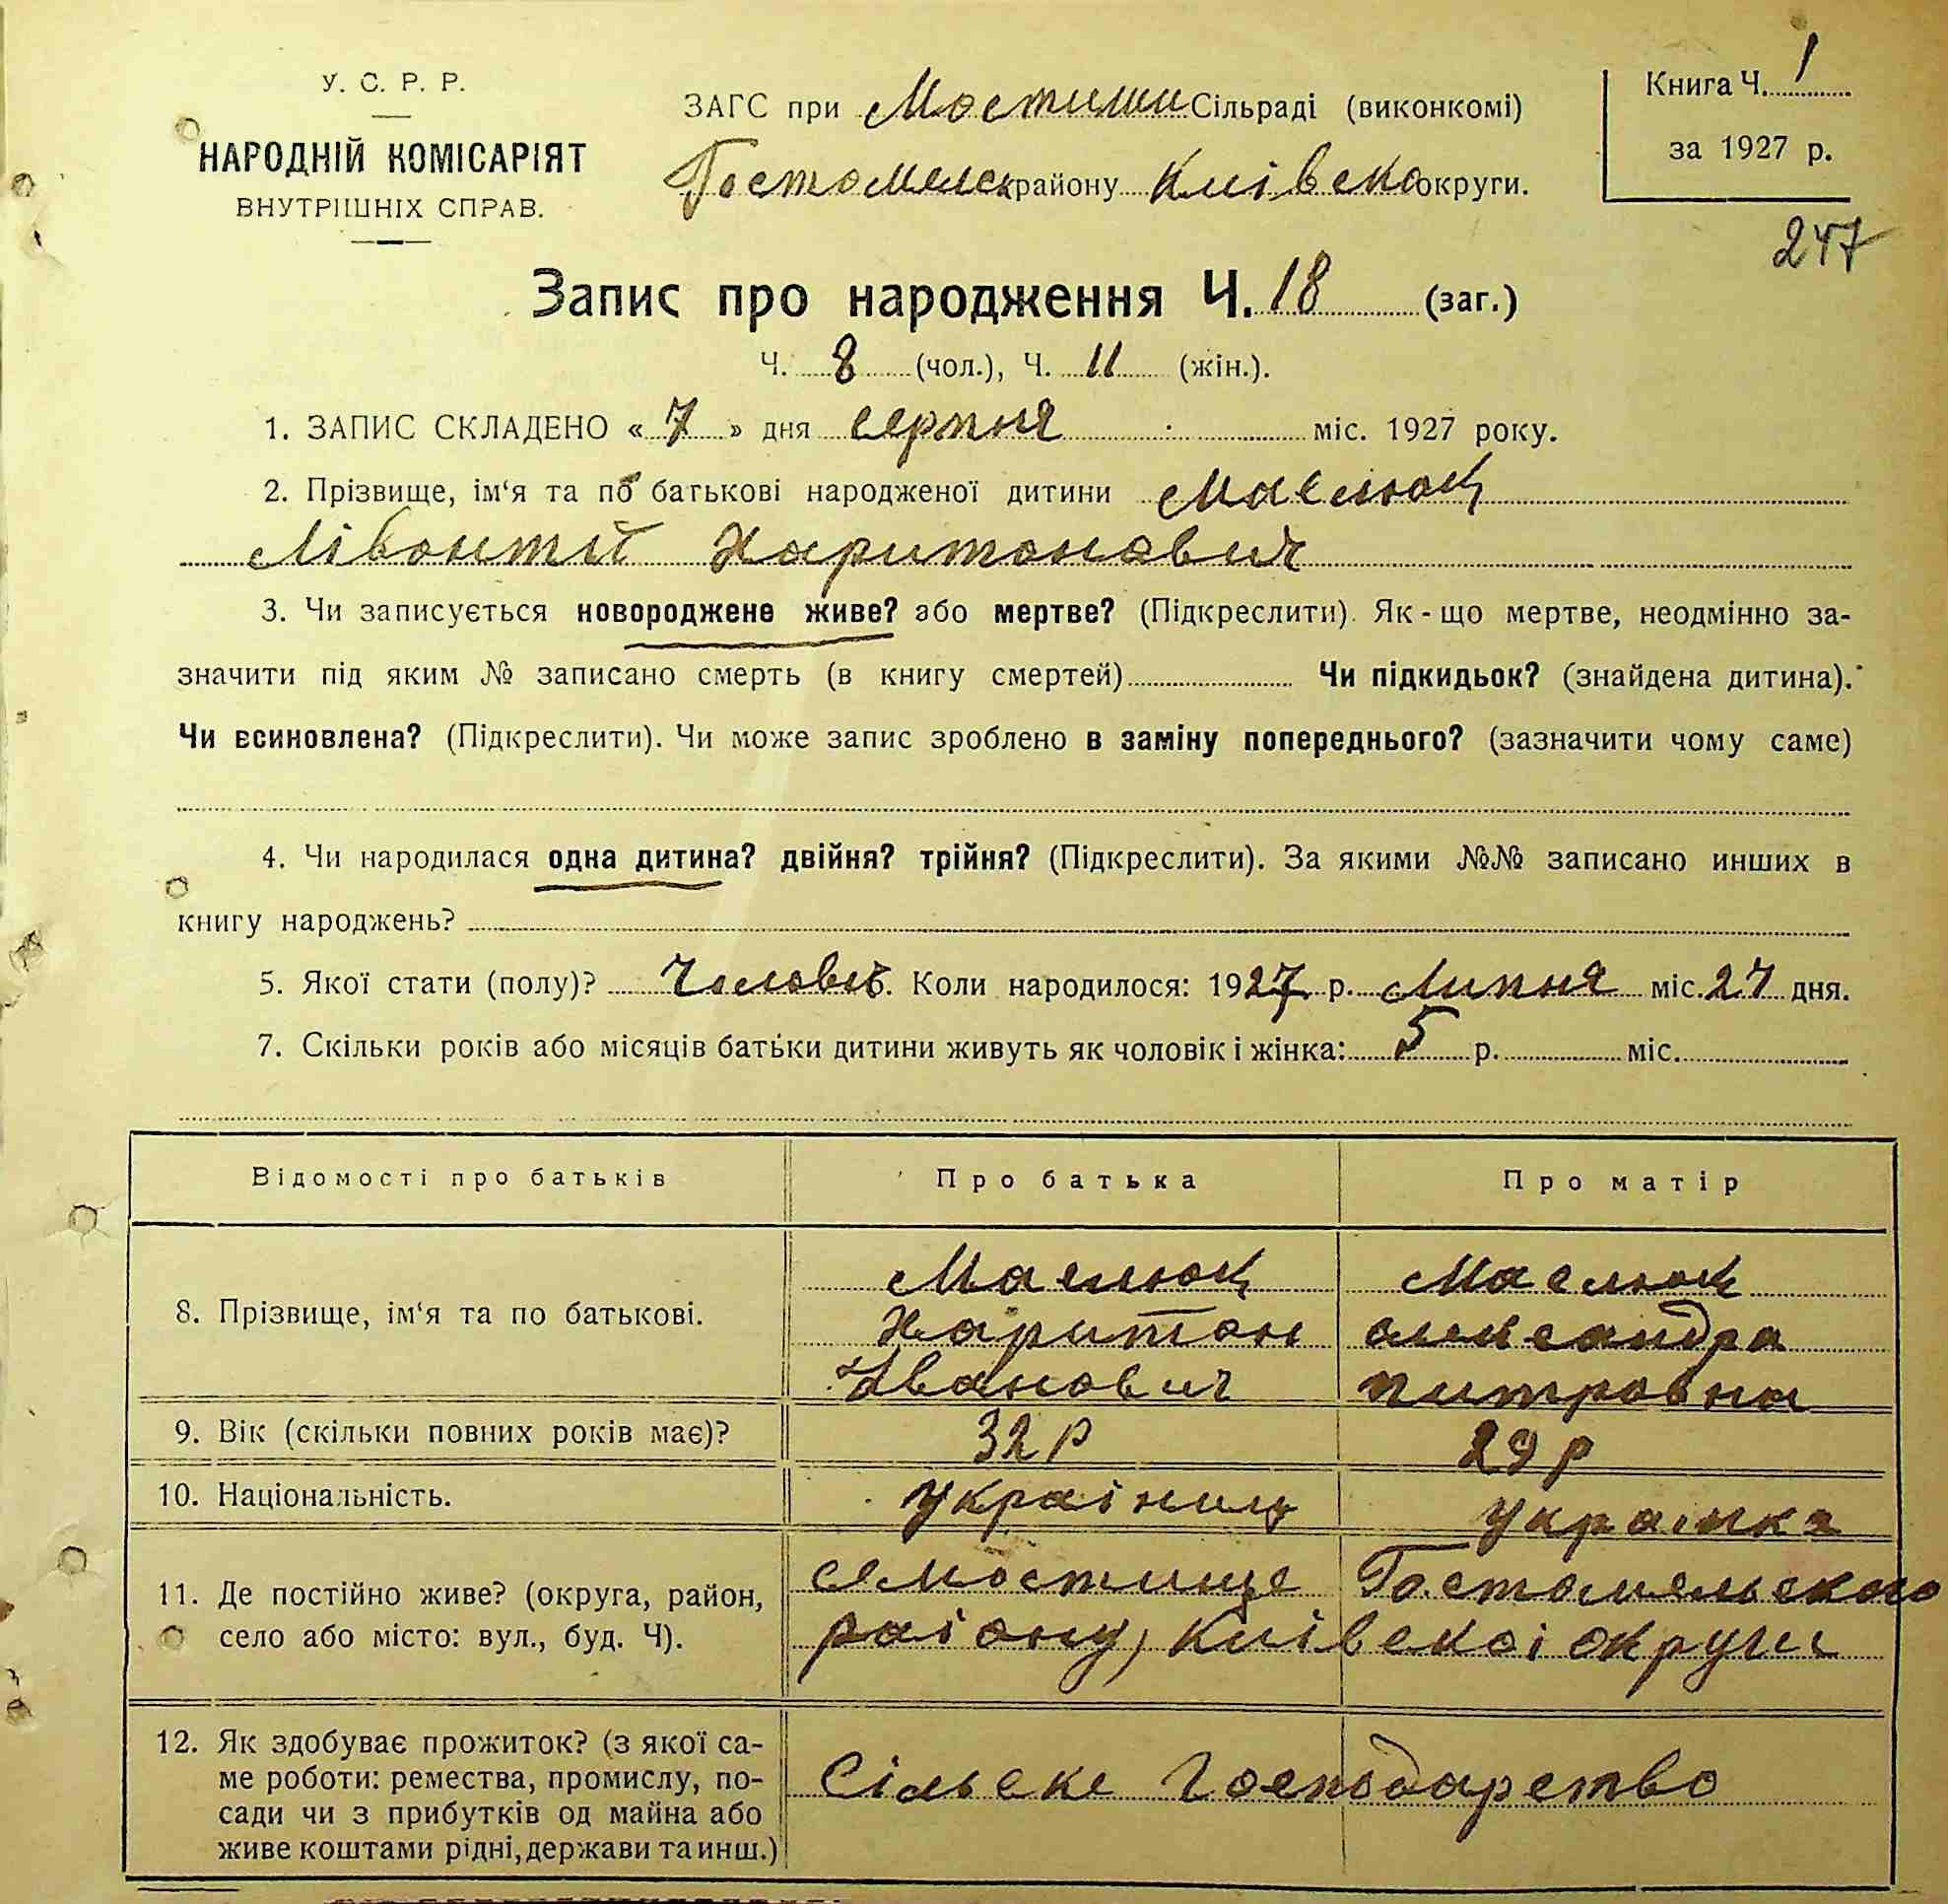 У. С. Р. Р.
НАРОДНІЙ КОМІСАРІЯТ
ВНУТРІШНІХ СПРАВ.
ЗАГС при Мостищи Сільраді (виконкомі)
Гостомельск району Київско округи.
Книга Ч. 1
за 1927 р.
247
Запис про народження Ч. 18 (заг.)
Ч. 8 (чол.), Ч. 11 (жін.).
1. ЗАПИС СКЛАДЕНО « 7 » дня серпня міс. 1927 року.
2. Прізвище, ім‘я та по батькові народженої дитини Маслюк
Лівонтій Харитонович
3. Чи записується новороджене живе? або мертве? (Підкреслити). Як-що мертве, неодмінно за-
значити під яким № записано смерть (в книгу смертей) Чи підкидьок? (знайдена дитина).
Чи всиновлена? (Підкреслити). Чи може запис зроблено в заміну попереднього? (зазначити чому саме)
4. Чи народилася одна дитина? двійня? трійня? (Підкреслити). За якими №№ записано инших в
книгу народжень?
5. Якої стати (полу)? Коли народилося: 1927 р. Липня міс. 27 дня.
7. Скільки років або місяців батьки дитини живуть як чоловік і жінка: 5 р. міс.
Відомості про батьків Про батька Про матір
8. Прізвище, ім‘я та по батькові.
Маслюк
Харитон
Іванович
Маслюк
олександра
питровна
9. Вік (скільки повних років має)? 32 р 29 р
10. Національність. україниць українка
11. Де постійно живе? (округа, район,
село або місто: вул., буд. Ч).
с Мостище Гостомельського
раіону, Київскоі округи
12. Як здобуває прожиток? (з якої са-
ме роботи: ремества, промислу, по-
сади чи з прибутків од майна або
живе коштами рідні, держави та инш.)
Сільске Господарство